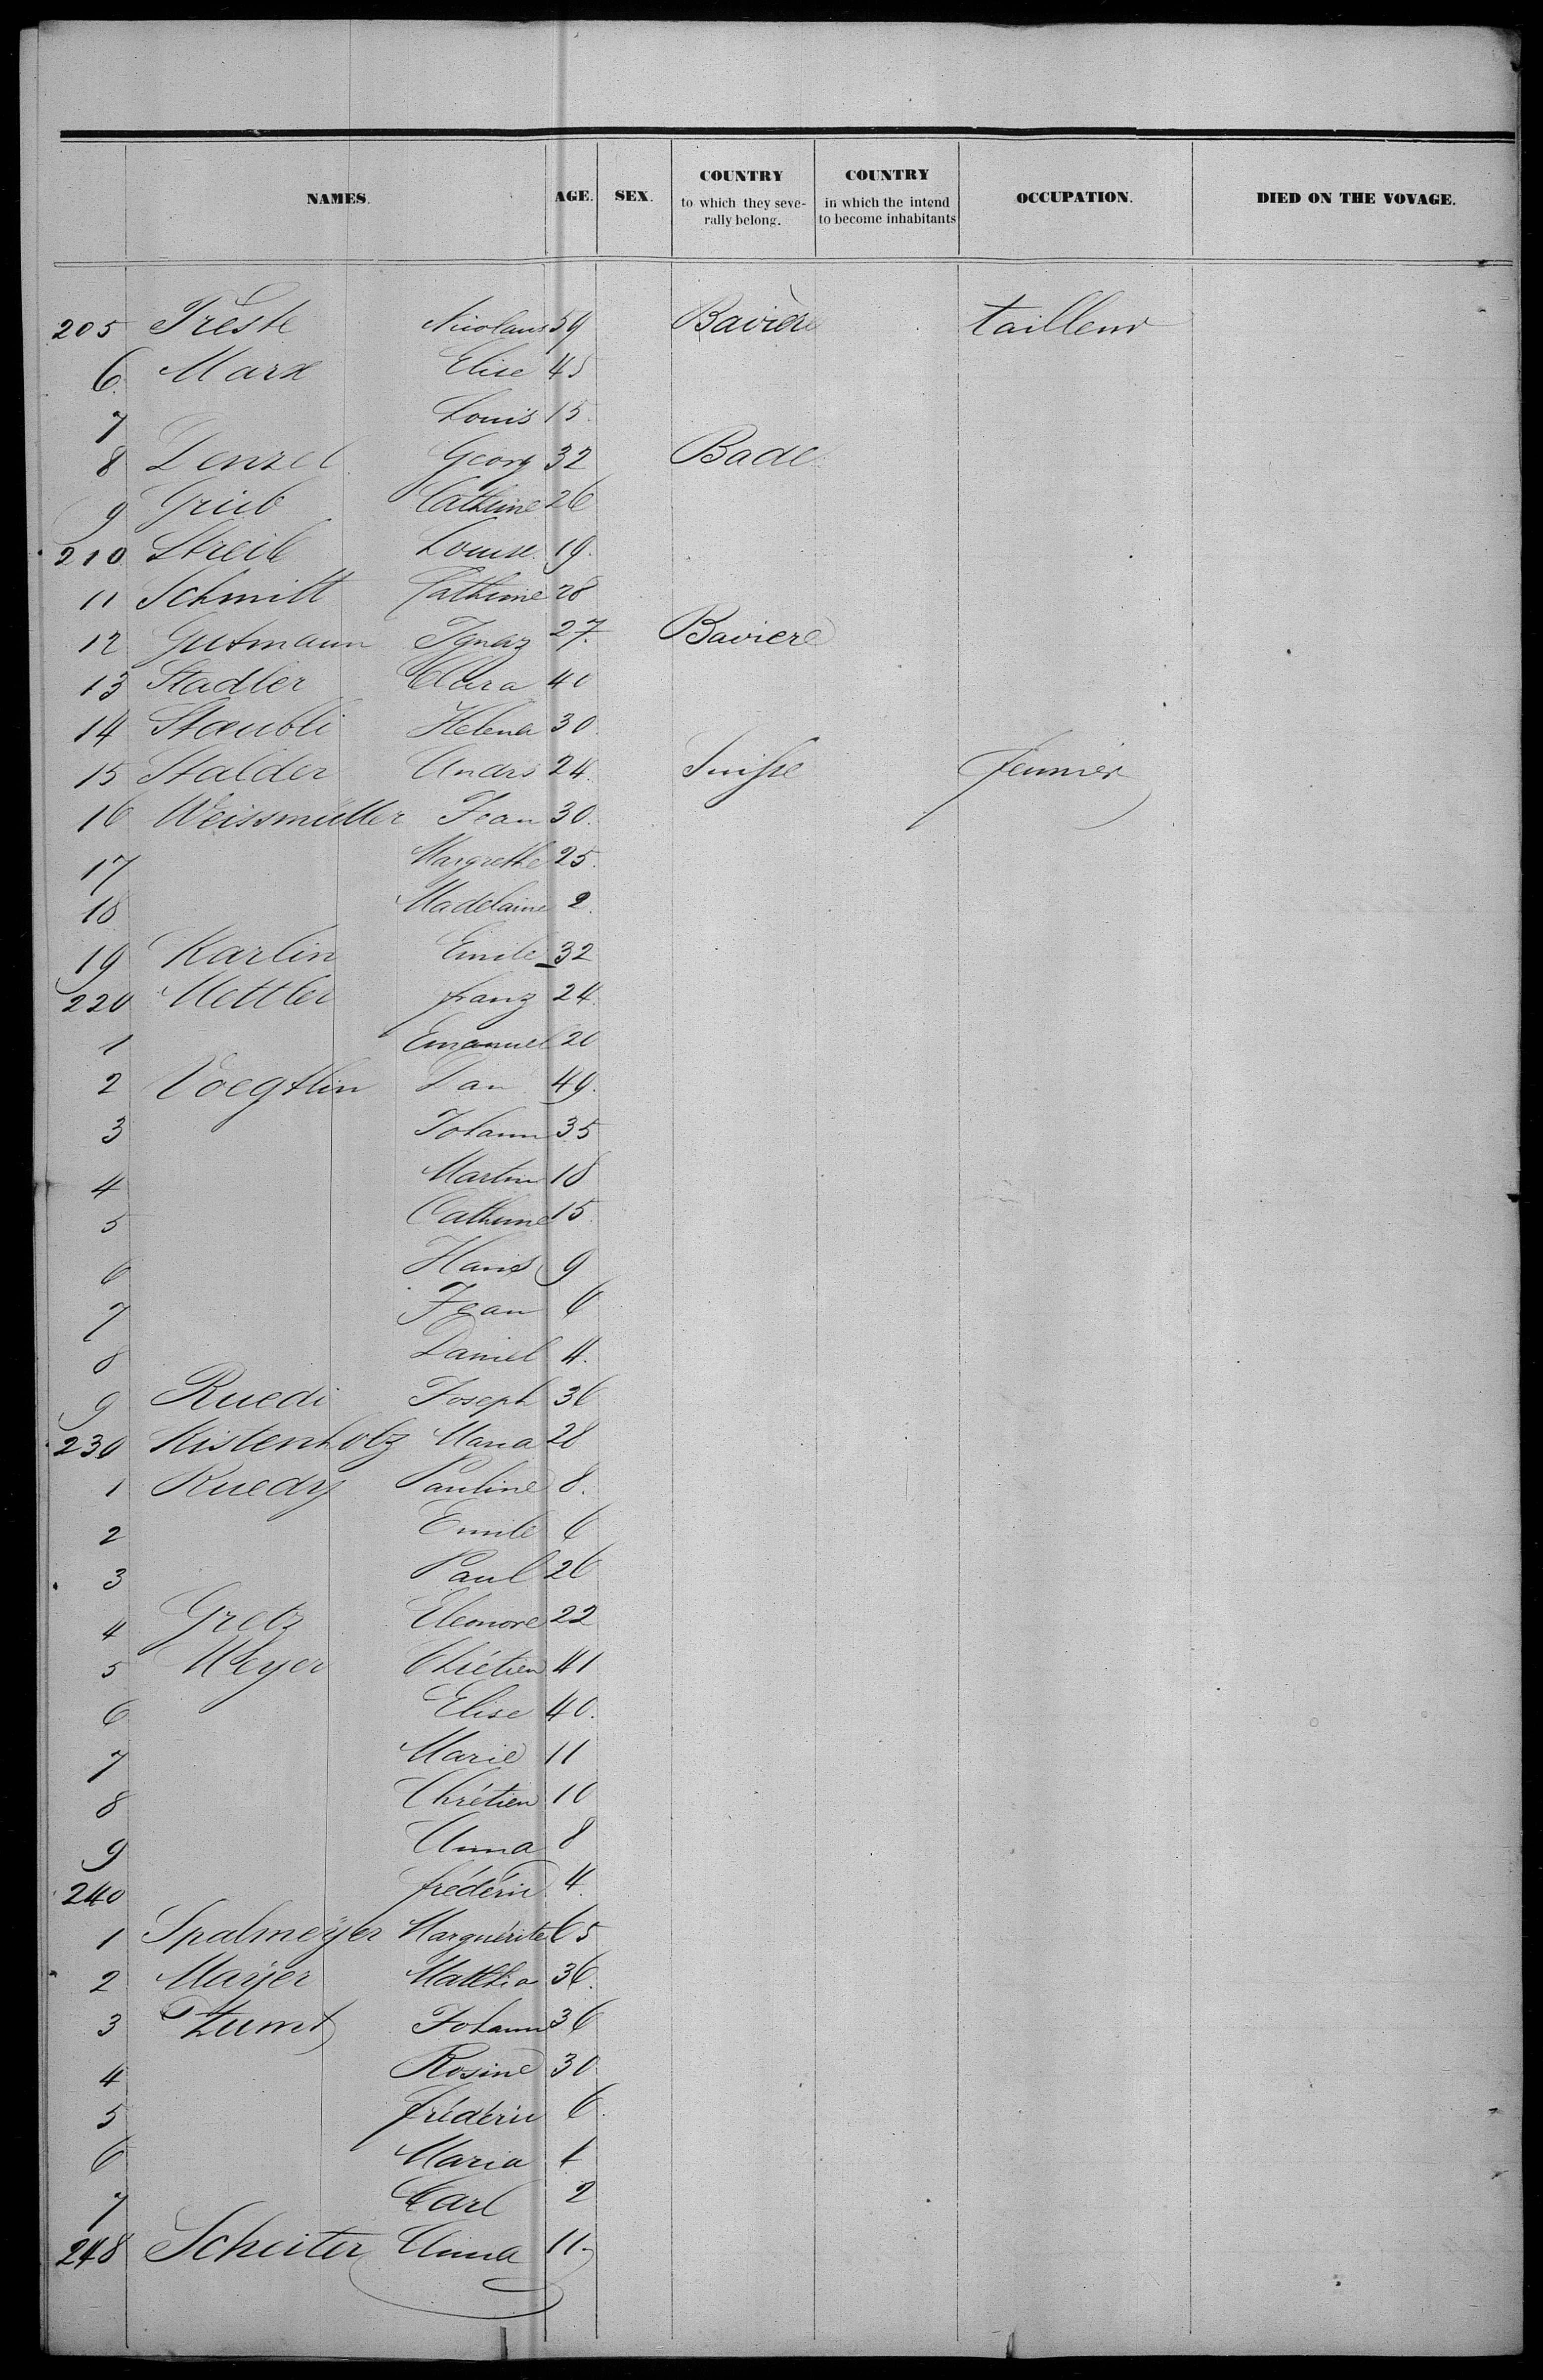 NAMES. AGE. SEX. COUNTRY to which they seve- rally belong. COUNTRY in which the intend to become inhabitants OCCUPATION. DIED ON THE VOYAGE.
205 Treste Nicolaus 59 Bavière tailleur
6 Marx Elise 45
7 Louis 15
8 Denzel Georg 32 Bade
9 Grieb Cathrine 26
210 Streib Louise 19
11 Schmitt Cathrine 28
12 Gutmann Ignaz 27 Baviere
13 Stadler Clara 40
14 Staeubli Helena 30
15 Stalder Andrs 24 Suisse fermier
16 Weissmüller Jean 30
17 Margrethe 25
18 Madelaine 2
19 Karlin Emile 32
220 Mettler franz 24
1 Emanuel 20
2 Voegtlin Dan 49
3 Johann 35
4 Martin 18
5 Cathrine 15
6 Hans 9
7 Jean 6
8 Daniel 4
9 Ruedi Joseph 36
230 Kistenholz Maria 28
1 Ruedy Pauline 8
2 Emile 6
3 Paul 26
4 Gretz Eleonore 22
5 Meyer Chrétien 41
6 Elise 40
7 Marie 11
8 Chrétien 10
9 Anna 8
240 fréderic 4
1 Spalmeyer Marguérite 65
2 Mayer Mathia 36
3 Johann 36
4 Rosine 30
5 fréderic 6
6 Maria
7 Carl 2
248 Scheiter Anna 11